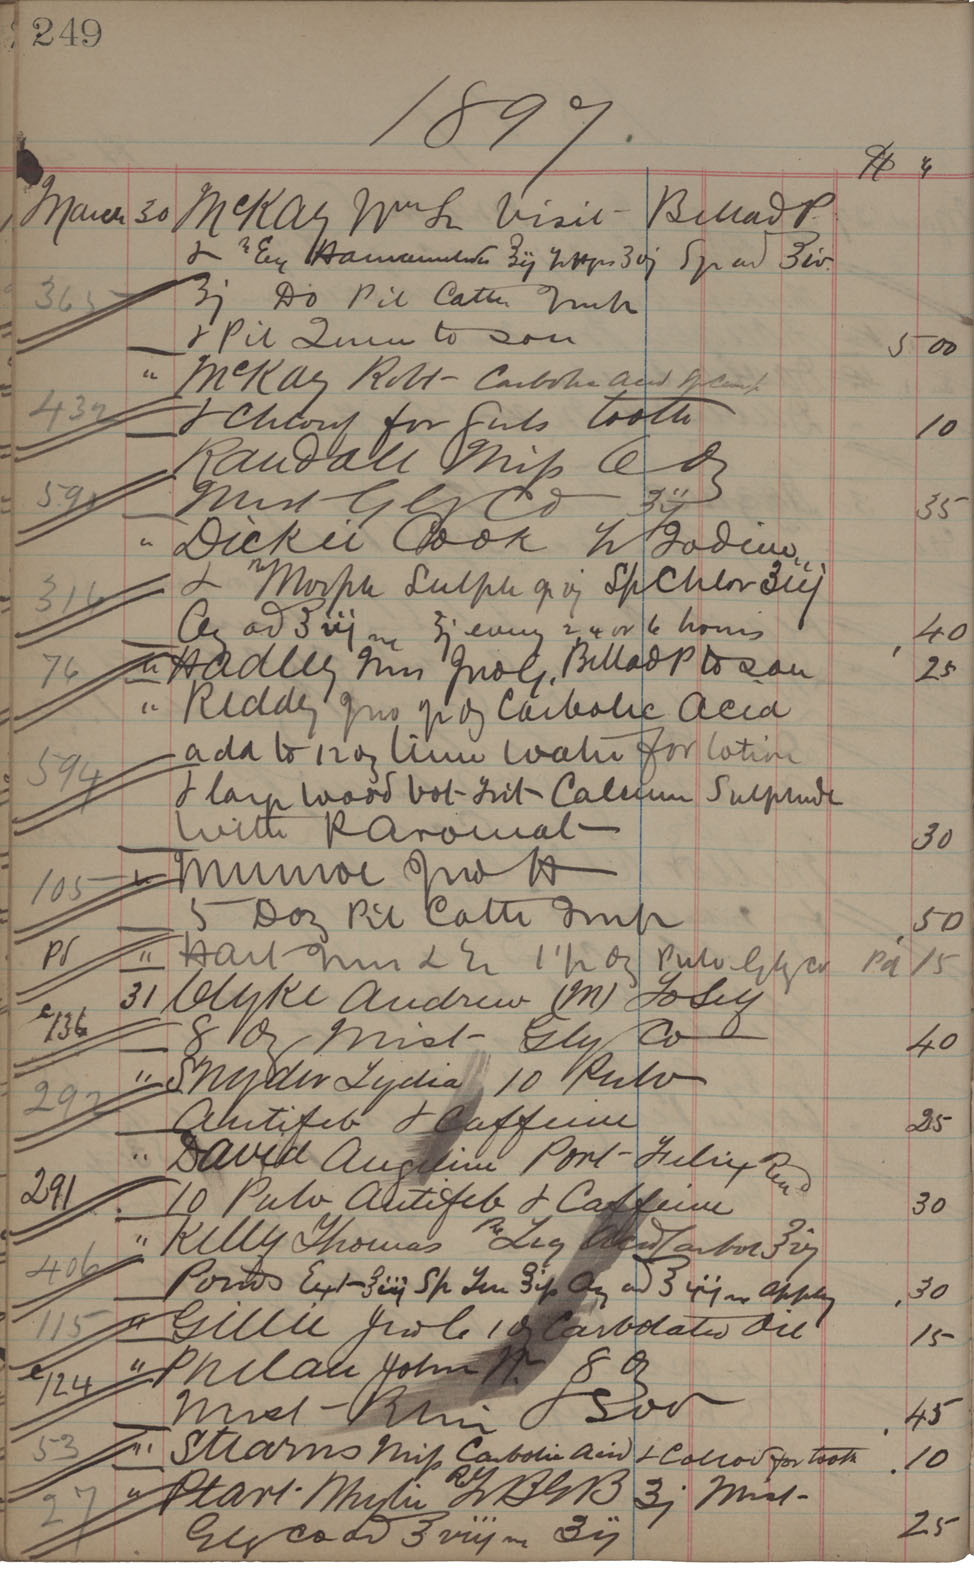 249
1897.
March 30 McKay Wm Sr Visit - Bellad P.
& Ext Hamamelis ʒij ʒvj Syr ad ʒiv.
365 ʒj Do Pil Cath Imp
& Pil to son 5 00
" McKay Robt - Carbolic Acid Glyc
432 & Chlorof for Girls tooth 10
Randall Miss C Oz
591 Mist Gly Co ʒij 35
" Dickie Cook Tr Iodine
316 & Morph Sulph gr vj Sp Chlor ʒiij
Aq ad ʒviij ʒj every 2, 4 or 6 hours 40
76 " Hadley Mrs Jno G, Bellad P to son 25
" Reddy Jno Oz Carbolic Acid
594 add to 12 oz lime water for lotion
& large wood bot Trit - Calcium Sulphide
with P Aromat 30
105 " Munroe Jno H
5 Doz Pil Cath Imp 50
Pd " Hart Mrs L E 1 ½ Oz Pulv Gly Co Pd 15
31 Clyke Andrew (M) To Self
e/136 8 Oz Mist - Gly Co 40
292 " Snyder Lydia 10 Pulv
Antifeb & Caffeine 25
" David Angeline Port - Felix Road
291 10 Pulv Antifeb & Caffeine 30
" Kelly Thomas Rx Liq Acid Carbol ʒij
406 Ponds Ext - ʒiij Sp ʒiss Aq ad ʒviij apply 30
115 " Gillie Jno C 1 oz Carbolated Oil 15
e/124 " Phelan John W. 8 Oz
Mist - Rhei & Sod 45
53 " Stearns Miss Carbolic Acid & Collod for tooth 10
27 " Start - Rx Tr B G B ʒj Mist -
Gly Co ad ʒviij ʒij 25